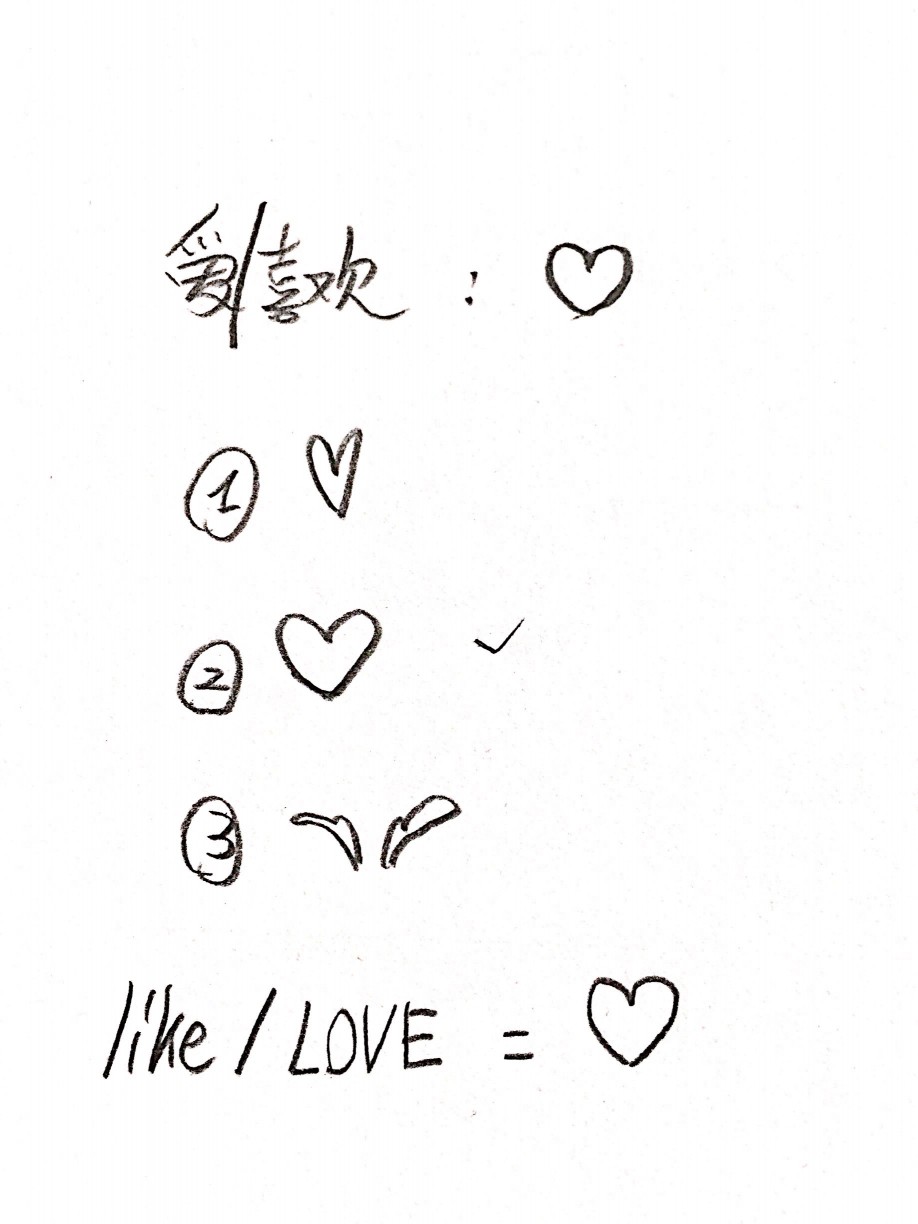 爱/喜欢 : ♡
① ♡
② ♡ ✓
③
like / LOVE = ♡